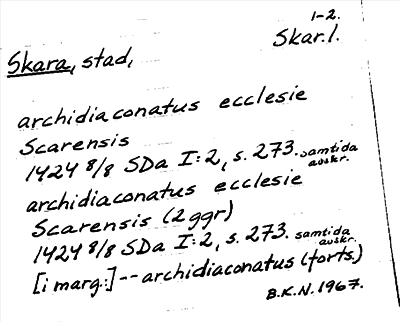 1-2.
Skara, stad, Skar.l.
archidiaconatus ecclesie
Scarensis
1424 8/8 SDa I:2, s. 273. samtida avskr.
archidiaconatus ecclesie
Scarensis (2 ggr)
1424 8/8 SDa I:2, s. 273. samtida avskr.
[i marg:] -- archidiaconatus (forts.)
B.K.N. 1967.